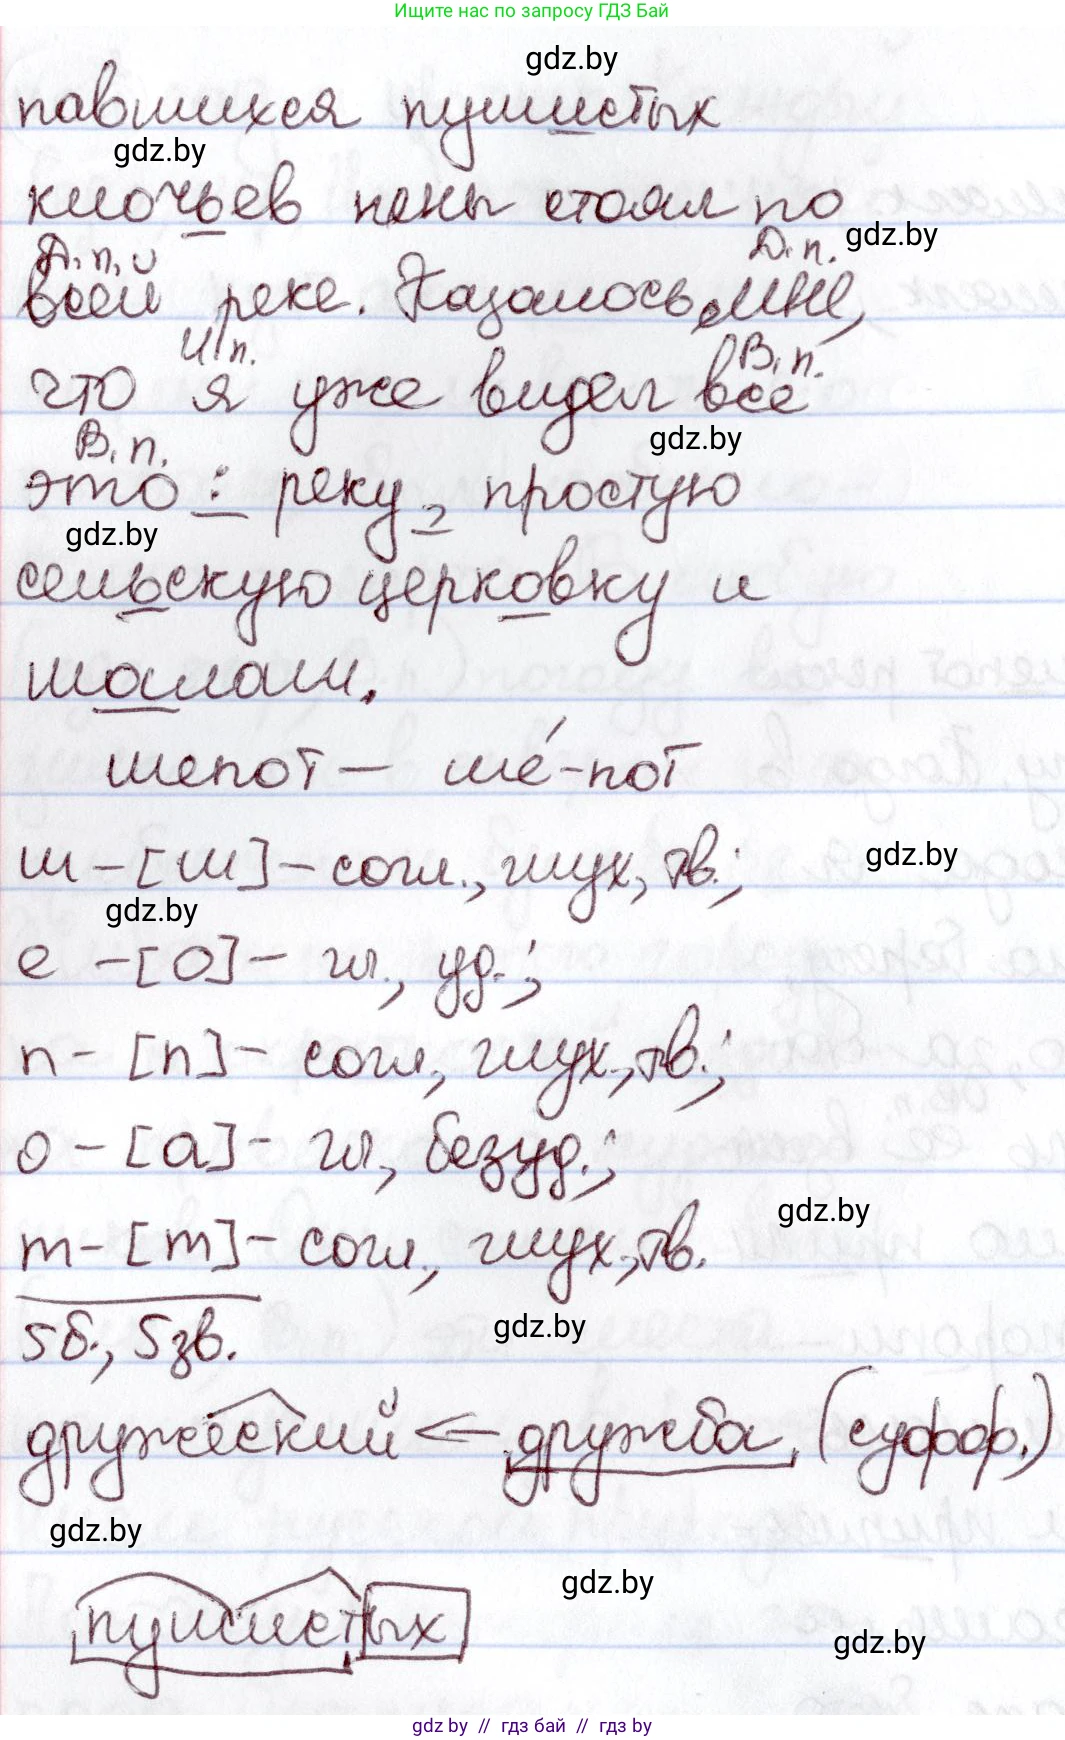 Ищите нас по запросу ГДЗ Бай
gdz.by
павшихся пушистых
gdz.by
клочьев пены стоял по
gdz.by
Д. п. Д. п.
всей реке. Казалось мне,
И. п. В. п.
что я уже видел всё
gdz.by
В. п.
это: реку, простую
gdz.by
сельскую церковку и
шалаш.
шепот – шé-пот
ш – [ш] – согл., глух, тв.;
gdz.by
gdz.by
е – [о] – гл., уд.;
п – [п] – согл., глух., тв.;
о – [а] – гл., безуд.;
gdz.by
т – [т] – согл., глух., тв.
5 б., 5 зв.
gdz.by
дружеский ← дружба (суфф.)
gdz.by
gdz.by
пушистых
gdz.by
gdz by // гдз бай // гдз by